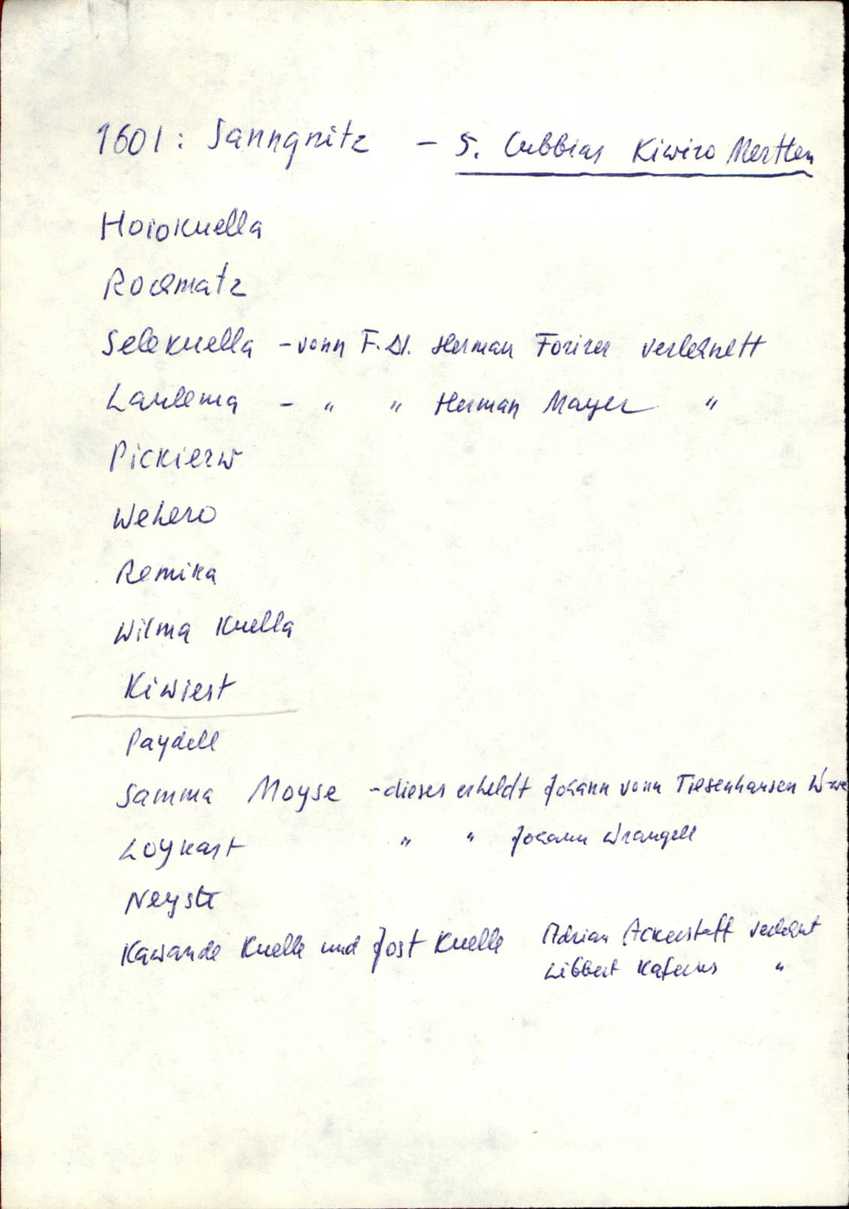 1601: Sanngnitz - 5. Cubbias Kiwiro Mertten
Hoiokuella
Rochmatz
Selekuella - vonn F. D. Herman Forirer verlehnett
Laulema - " " Herman Mayer "
Pickierw
Wehero
Remika
Wilma Kuella
Kiwiest
Paydell
Samma Moyse - dieses erheldt Johann vonn Tiesenhausen
Loykast " " Johann Wrangell
Neyste
Kawande Kuella und Jost Kuella Adrian Ackerstaff verlehnt
Libbert Kaferus "